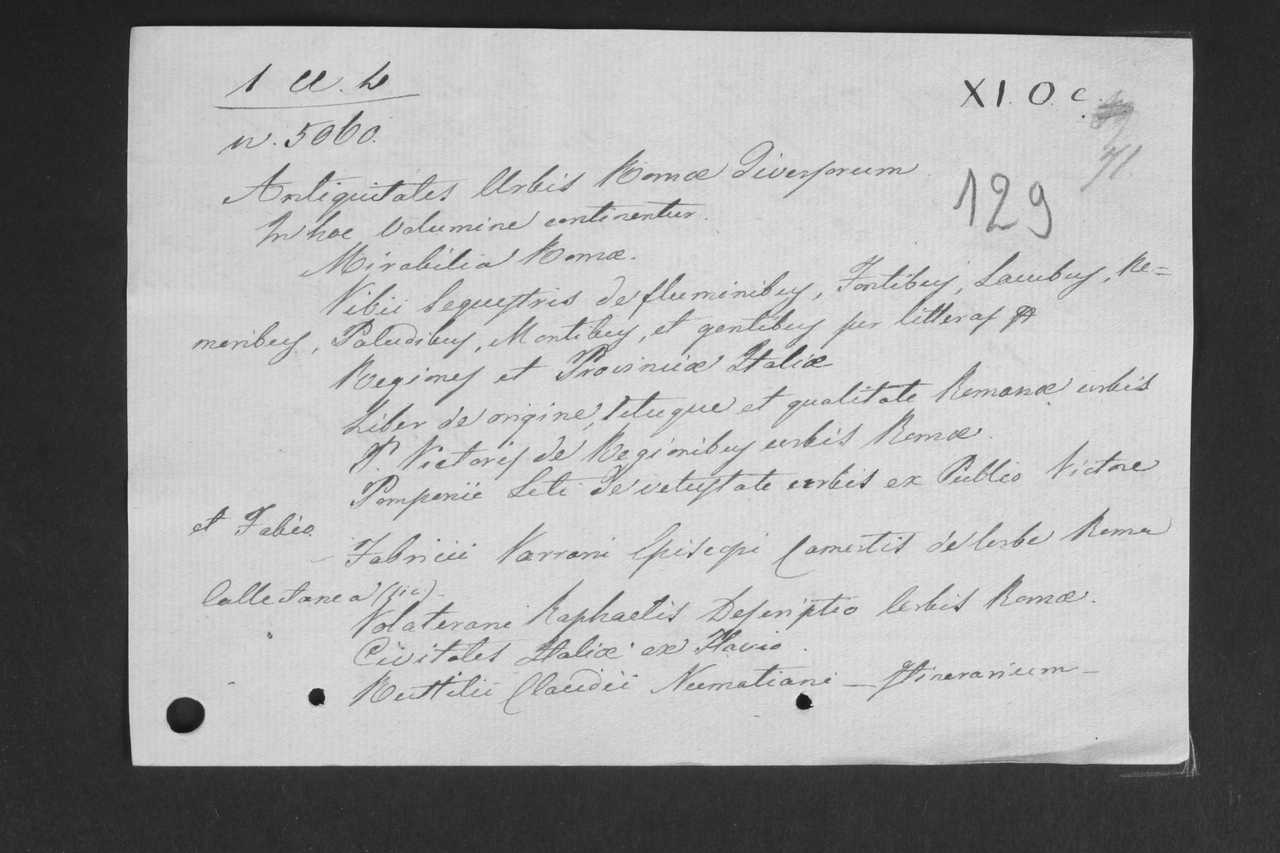 1 cc. 4
XI. O. c.
n. 5060.
71.
129
Antiquitates Urbis Romæ diversorum
In hoc Volumine continentur.
Mirabilia Romæ.
Vibii Sequestris de fluminibus, Fontibus, Lacubus, Ne=
moribus, Paludibus, Montibus, et gentibus per litteras
Regiones et Provinciæ Italiæ
Liber de origine, situque et qualitate Romanæ urbis
P. Victoris de Regionibus urbis Romæ.
Pomponii Leti de vetustate urbis ex Publio Victore
et Fabio.
Fabricii Varrani Episcopi Camertis de Urbe Roma
Collectanea (sic).
Volaterani Raphaelis Descriptio Urbis Romæ.
Civitates Italiæ ex Flavio.
Ruttilii Claudii Numatiani – Itinerarium –